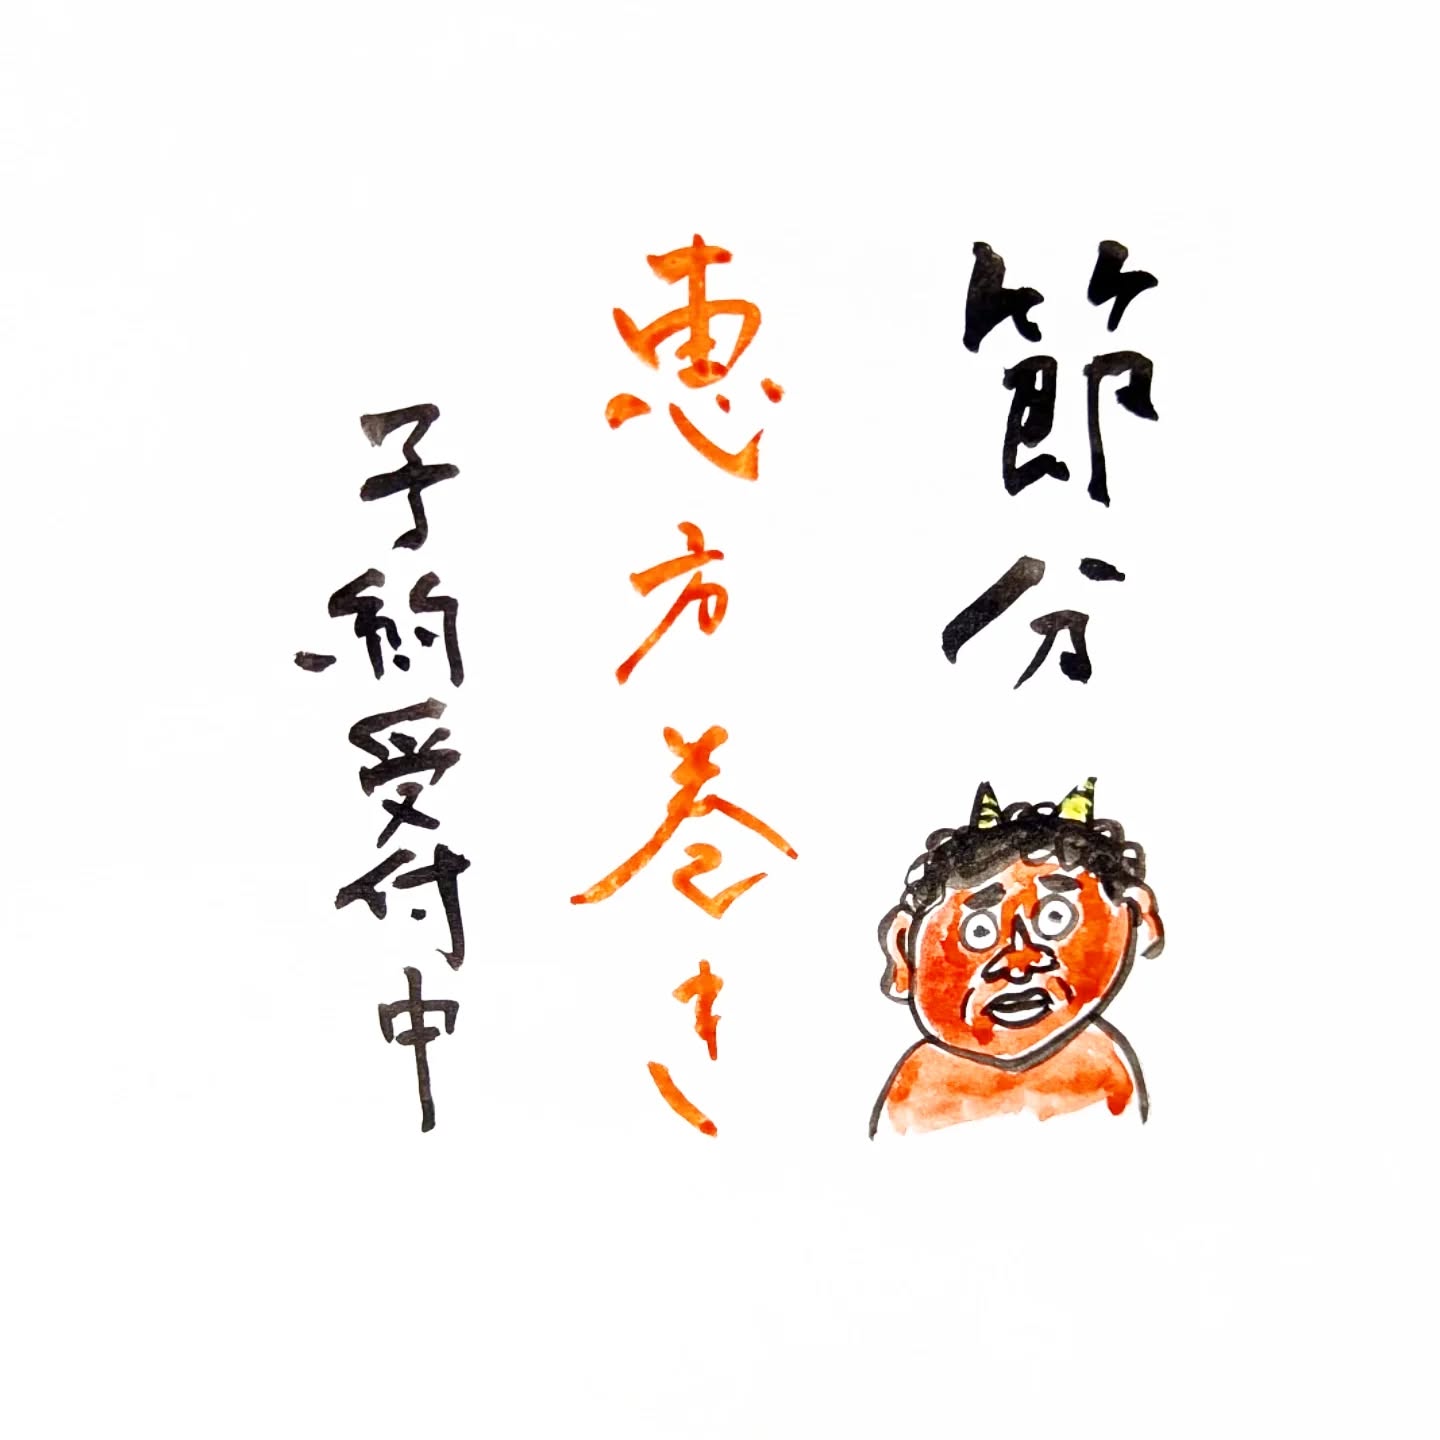 節分
恵方巻き
予約受付中